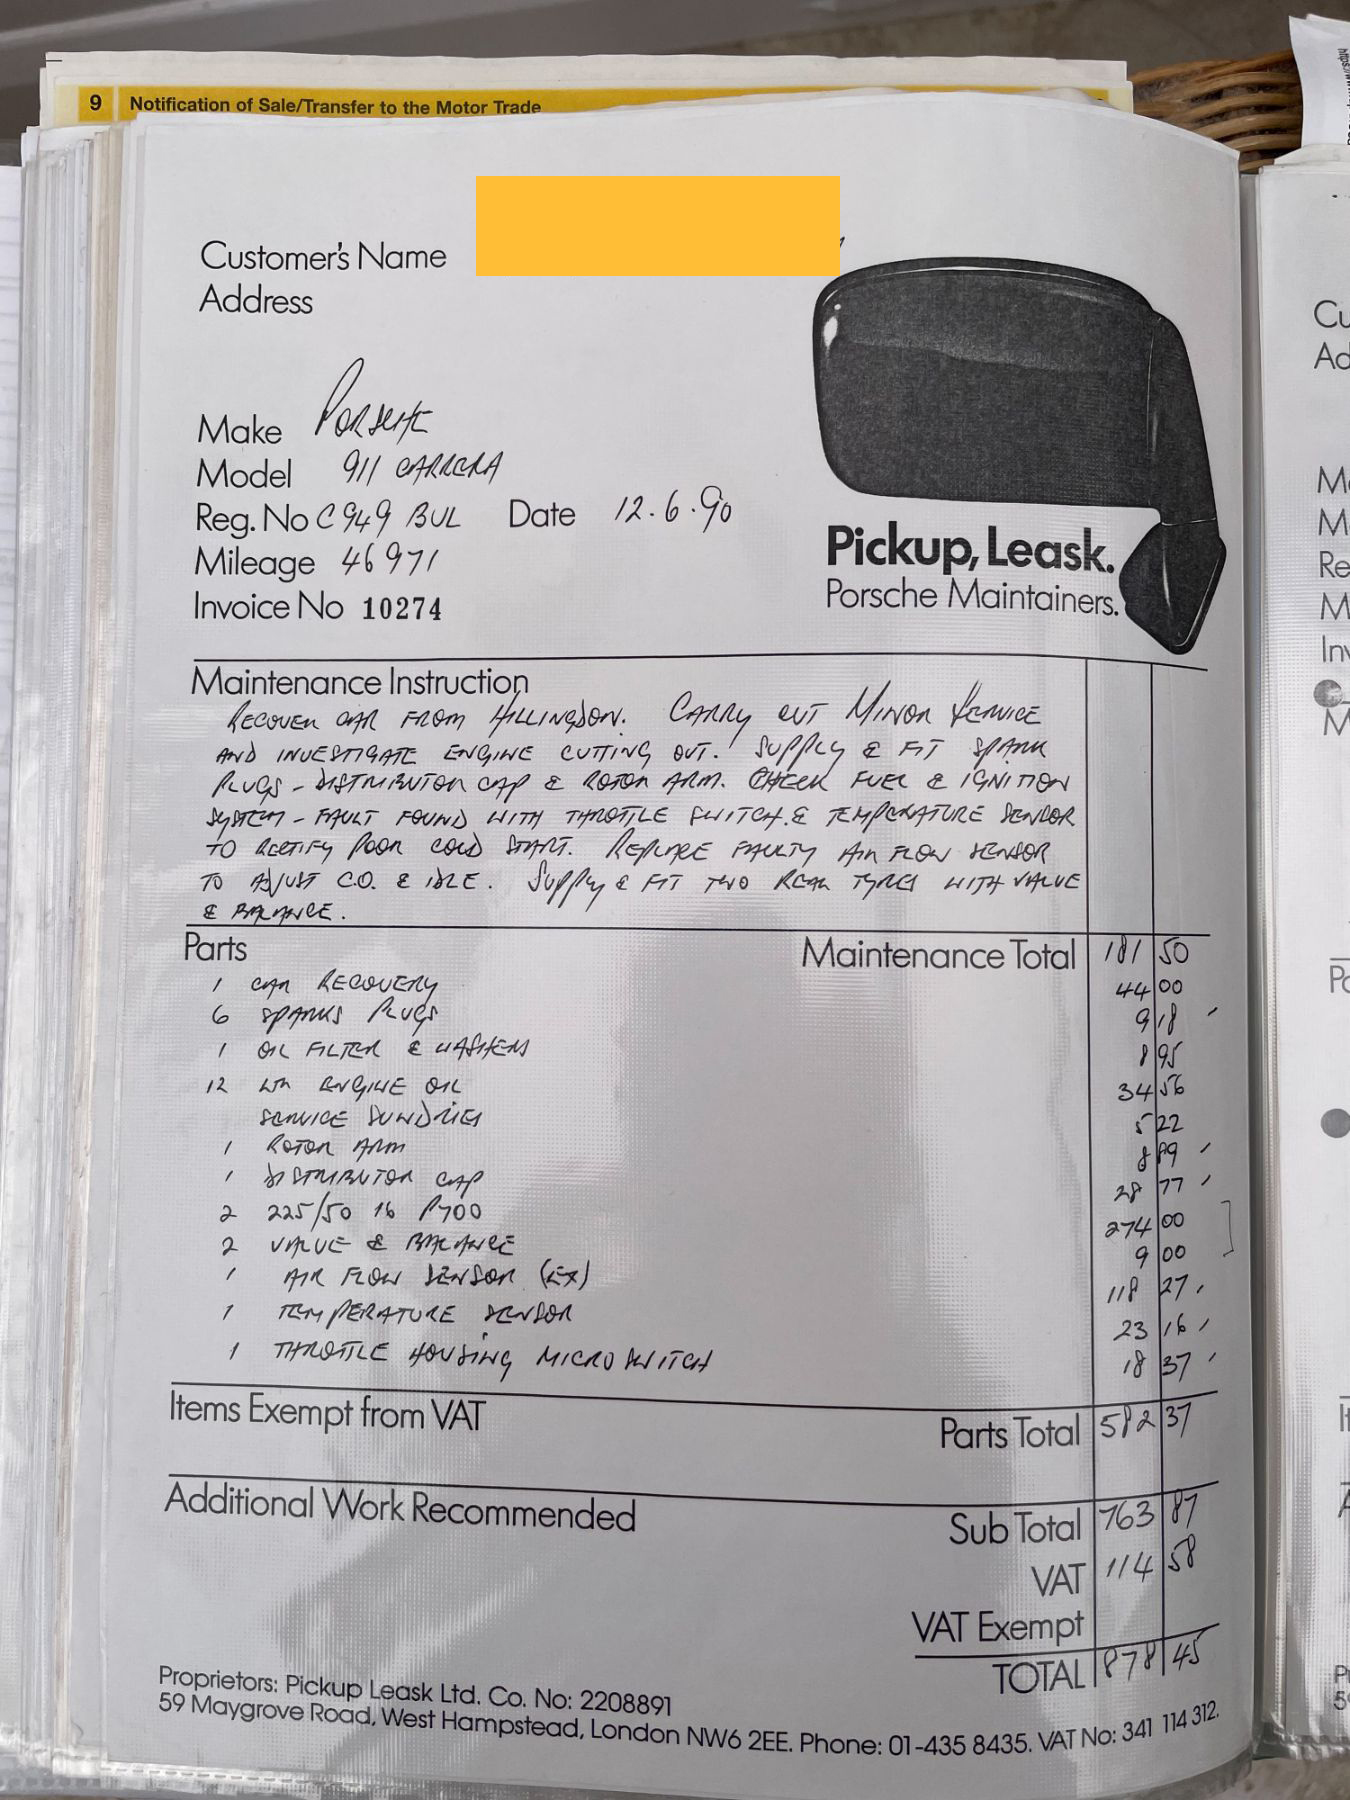 9 Notification of Sale/Transfer to the Motor Trade
Customer's Name
Address
Make PORSCHE
Model 911 CARRERA
Reg. No C949 BUL Date 12.6.90
Mileage 46971
Invoice No 10274
Pickup, Leask.
Porsche Maintainers.
Maintenance Instruction
RECOVER CAR FROM HILLINGDON. CARRY OUT MINOR SERVICE
AND INVESTIGATE ENGINE CUTTING OUT. SUPPLY & FIT SPARK
PLUGS - DISTRIBUTOR CAP & ROTOR ARM. CHECK FUEL & IGNITION
SYSTEM - FAULT FOUND WITH THROTTLE SWITCH. & TEMPERATURE SENSOR
TO RECTIFY POOR COLD START. REPLACE FAULTY AIR FLOW SENSOR
TO ADJUST C.O. & IDLE. SUPPLY & FIT TWO REAR TYRES WITH VALUE
& BALANCE.
Parts Maintenance Total 181 50
1 CAR RECOVERY 44 00
6 SPARKS PLUGS 9 18
1 OIL FILTER & WASHERS 8 95
12 LTR ENGINE OIL 34 56
SERVICE SUNDRIES 5 22
1 ROTOR ARM 8 89
1 DISTRIBUTOR CAP 28 77
2 225/50 16 P700 274 00
2 VALUE & BALANCE 9 00
1 AIR FLOW SENSOR (EX) 118 27
1 TEMPERATURE SENSOR 23 16
1 THROTTLE HOUSING MICROSWITCH 18 37
Items Exempt from VAT Parts Total 582 37
Additional Work Recommended Sub Total 763 87
VAT 114 58
VAT Exempt
TOTAL 878 45
Proprietors: Pickup Leask Ltd. Co. No: 2208891
59 Maygrove Road, West Hampstead, London NW6 2EE. Phone: 01-435 8435. VAT No: 341 114 312.